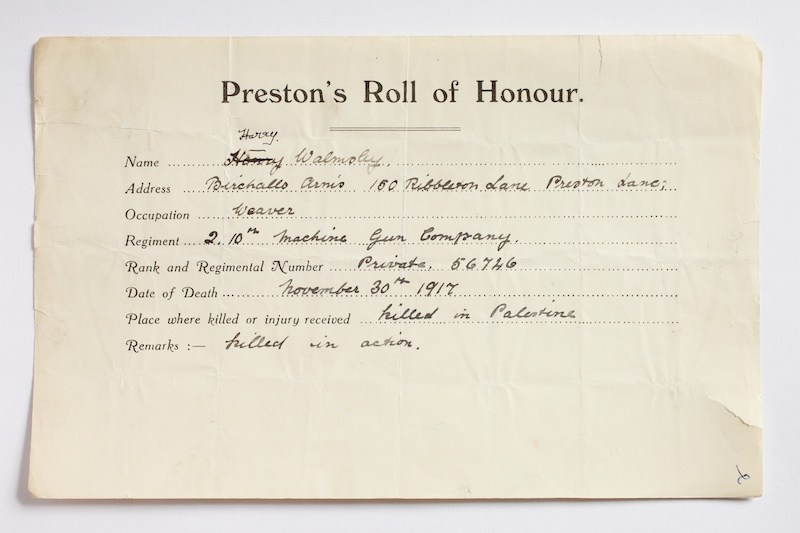 Preston's Roll of Honour.
Harry.
Name Henry Walmsley.
Address Birchalls Arms 150 Ribbleton Lane Preston Lanc;
Occupation Weaver
Regiment 2. 10th Machine Gun Company.
Rank and Regimental Number Private. 56746
Date of Death November 30th 1917
Place where killed or injury received killed in Palestine
Remarks :— killed in action.